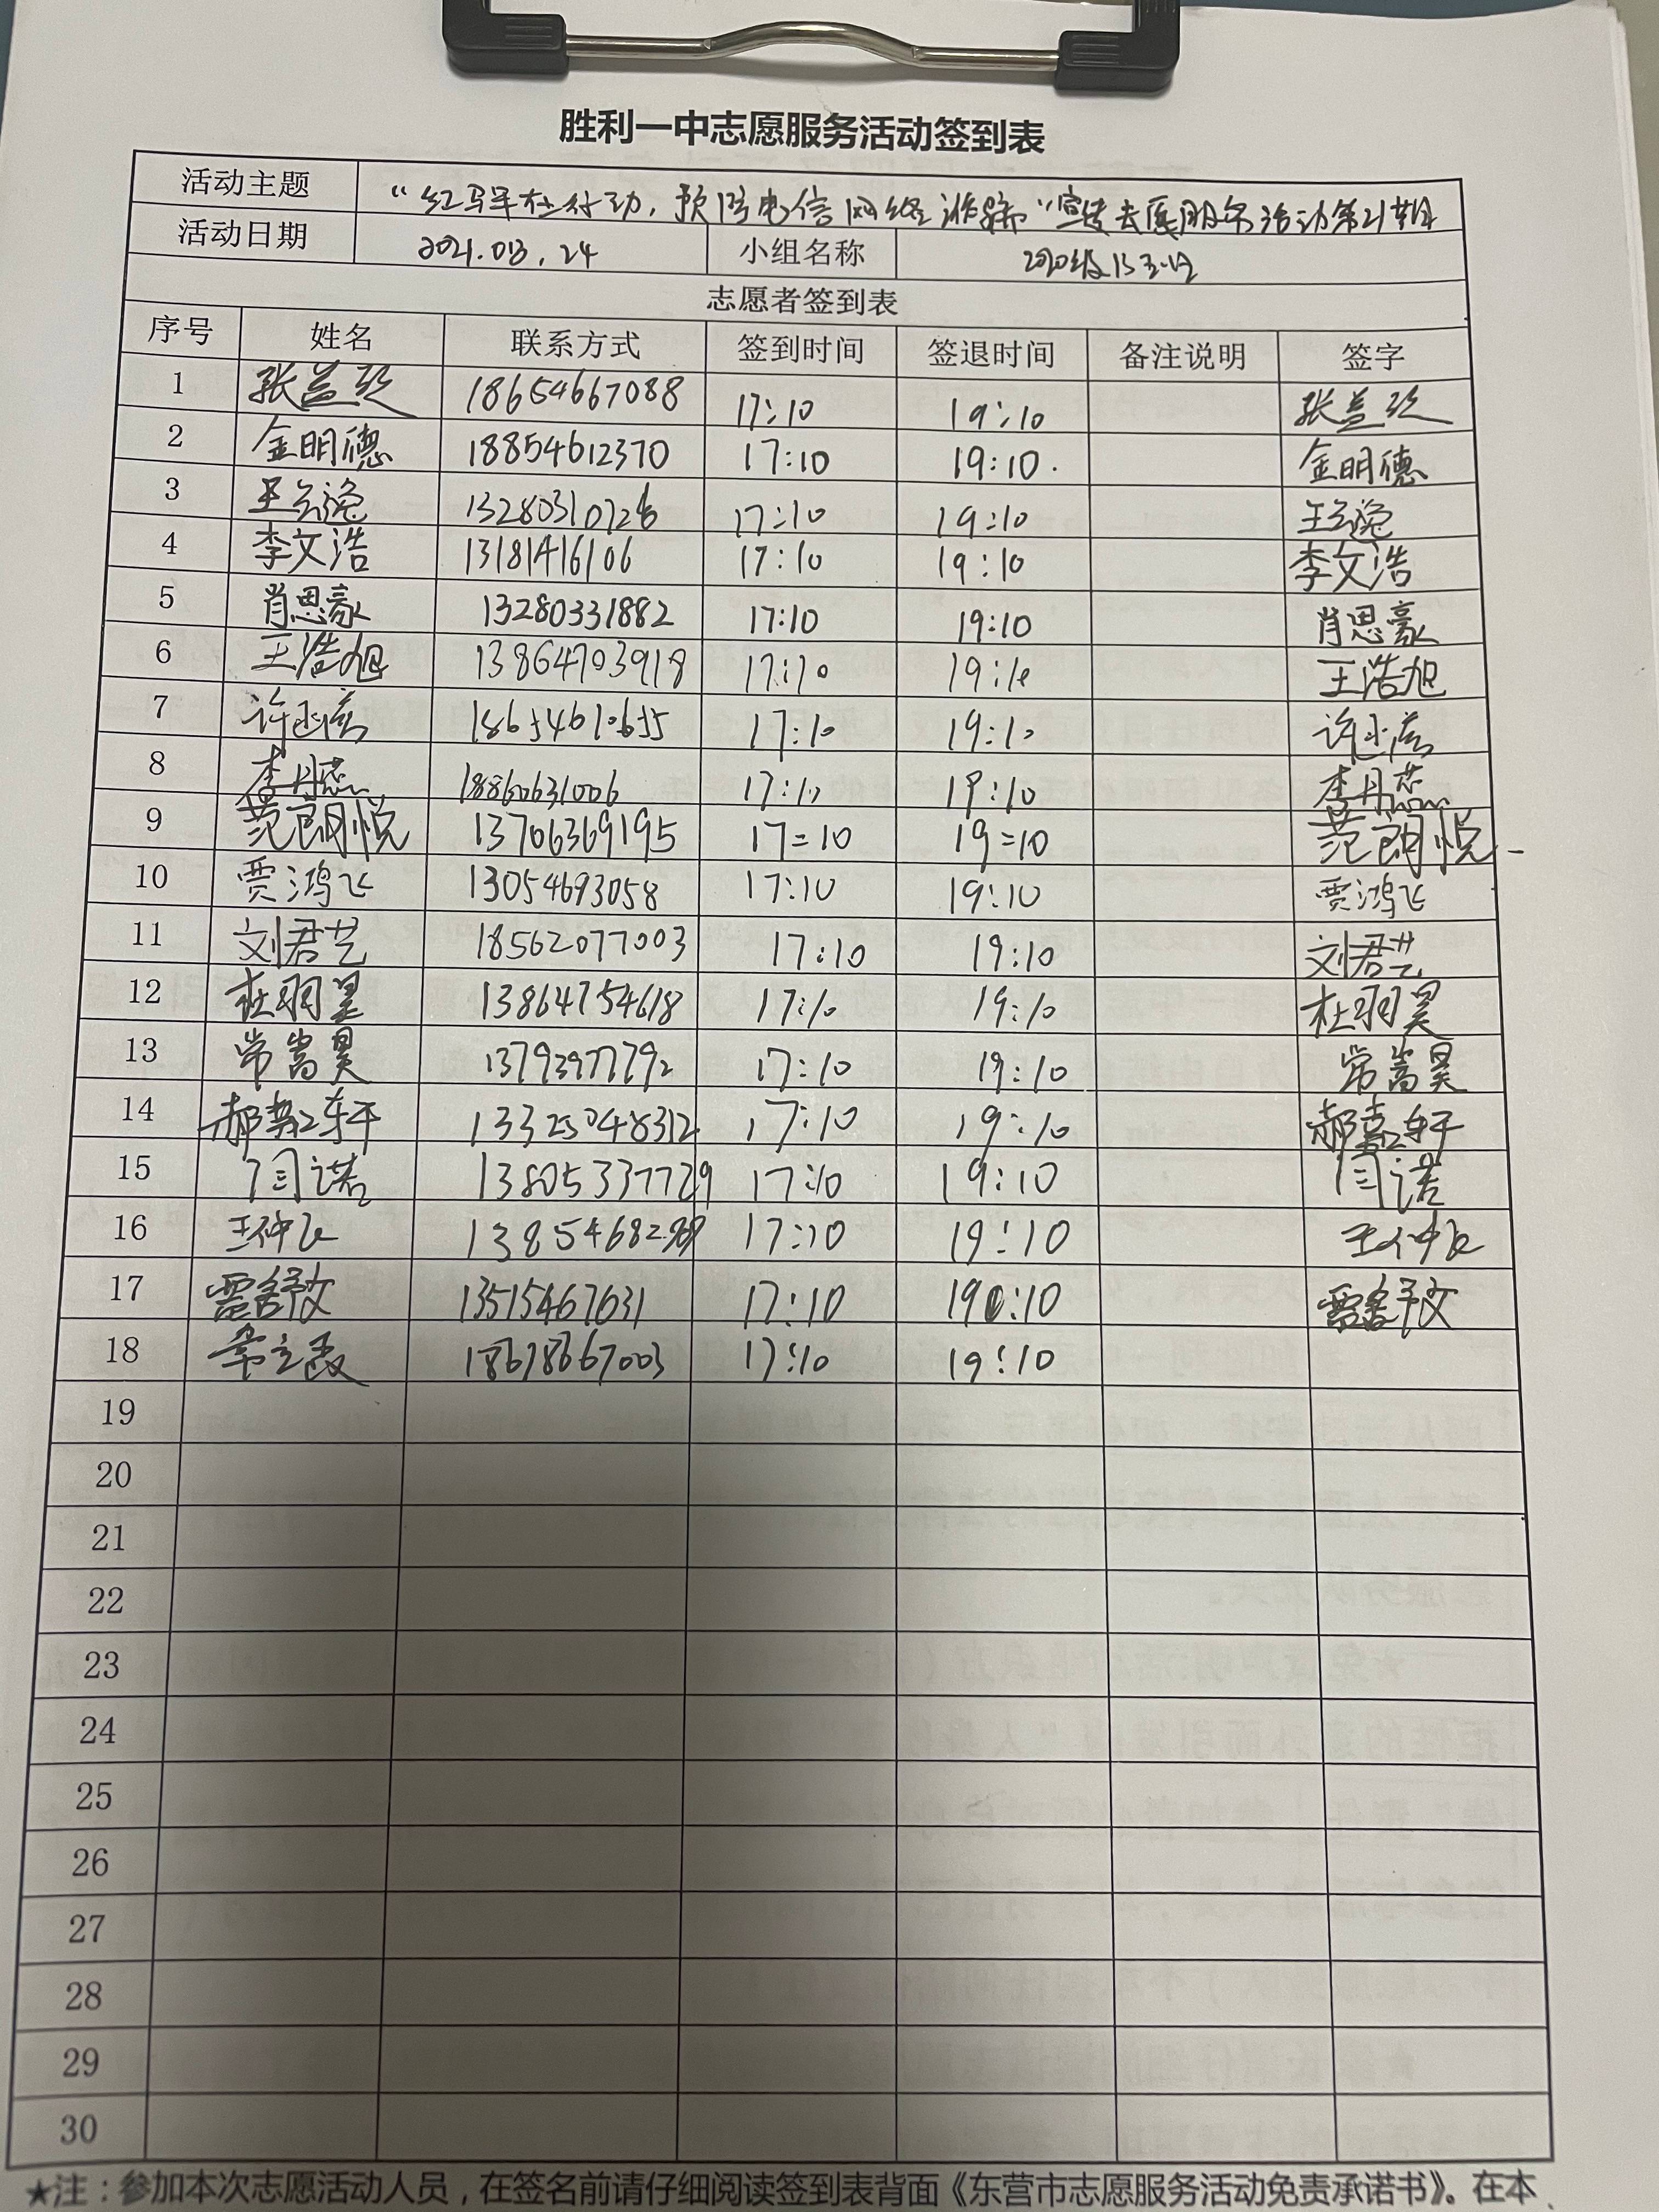 胜利一中志愿服务活动签到表
活动主题 "红马甲在行动,预防电信网络诈骗"宣传志愿服务活动第21期
活动日期 2021.03.24 小组名称 2020级
志愿者签到表
序号 姓名 联系方式 签到时间 签退时间 备注说明 签字
1 张益 18654667088 17:10 19:10 张益
2 金明德 18854612370 17:10 19:10. 金明德
3 王逸 13280310726 17:10 19:10 王逸
4 李文浩 13181416106 17:10 19:10 李文浩
5 肖思豪 13280331882 17:10 19:10 肖思豪
6 王浩旭 13864703918 17:10 19:10 王浩旭
7 许 17:10 19:10 许
8 李丹 18860631006 17:10 19:10 李丹
9 范朗悦 13706369195 17=10 19=10 范朗悦
10 贾鸿飞 13054693058 17:10 19:10 贾鸿飞
11 刘君艺 18562077003 17:10 19:10 刘君艺
12 杜羽昊 13864754618 17:10 19:10 杜羽昊
13 常嵩昊 13793977792 17:10 19:10 常嵩昊
14 郝轩 17:10 19:10 郝轩
15 闫诺 13805337729 17:10 19:10 闫诺
16 王仲飞 17:10 19:10 王仲飞
17 雷舒文 13515467631 17:10 19:10 雷舒文
18 18678667003 17:10 19:10
19
20
21
22
23
24
25
26
27
28
29
30
★注:参加本次志愿活动人员,在签名前请仔细阅读签到表背面《东营市志愿服务活动免责承诺书》。在本